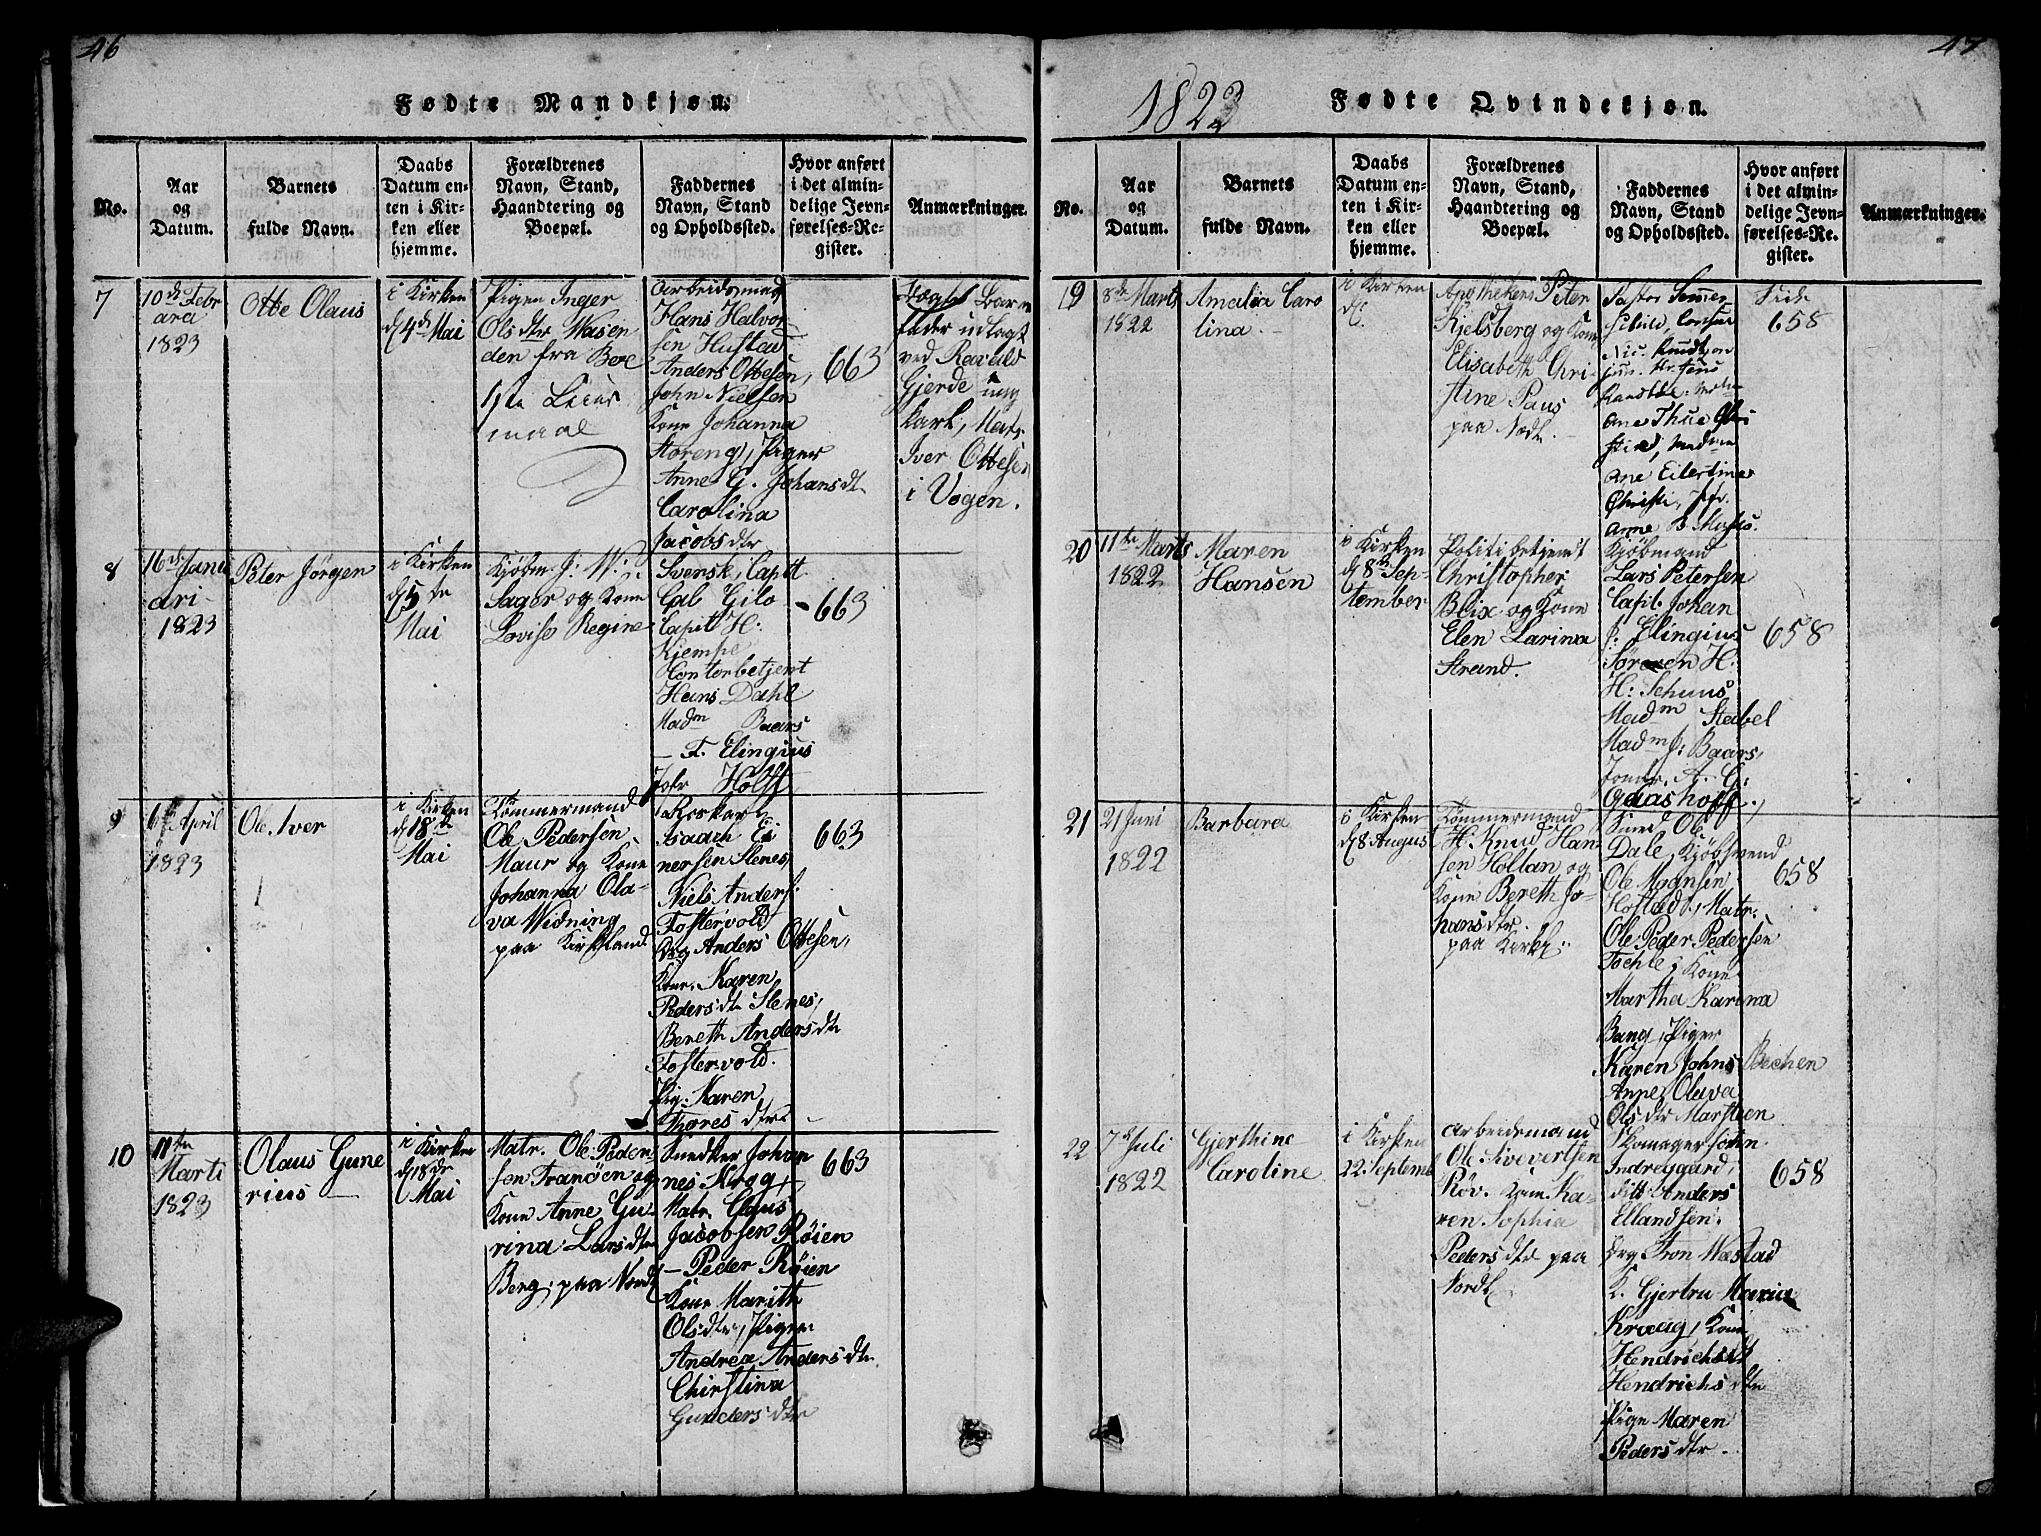 46
Fødte Mandkjøn.
No.
Aar
og
Datum.
Barnets
fulde Navn.
Daabs
Datum en-
ten i Kir-
ken eller
hjemme.
Forældrenes
Navn, Stand,
Haandtering og
Boepæl.
Faddernes
Navn, Stand
og Opholdssted.
Hvor anført
i det almin-
delige Jevn-
førelses-Re-
gister.
Anmærkninger.
7
10de Febr
1823
Otte Olaus
i Kirken
d 4de Mai
Pigen Inger
Olsdtr
den fra Boe
1ste Leier
maal
Arbeidsmad
Hans Halvor
sen Hustad
Anders Ottesen,
John Nielsen
Kone Johanna
Storeng, Piger
Anne G. Johansdtr
Carolina
Jacobsdtr
663
Barne
fader udlagt
ved
Gjerde ung
karl, Matr.
Iver Ottesen
i Vogen.
8
16de Janu
ari
1823
Peter Jörgen
i Kirken
d 5te
Mai
Kjöbm J: W:
Sager og Kone
Lovise Regine
Svensk Captt
Gilo
Capit H:
Kjempe
Contorbetjent
Hans Dahl
Madm Baars
— F. Elingius
Jofr Holst
663
9
6 April
1823
Ole Iver
i Kirken
d 18de
Mai
Tömmermand
Ole Pedersen
Maur og Kone
Johanna Ola-
va Widning
paa Kirkland
Isach Ei
nersen Stenes,
Niels Anders.
Fostervold
Drg Anders Ottesen,
Kone. Karen
Pedersdtr Stenes,
Bereth Andersdtr
Fostervold.
Pig. Karen
Thoresdtr
663
10
11te
Marti
1823
Olaus Gune
rius
i Kirken
d 18de
Mai
Matr. Ole Peder-
sen Franöen og
Kone Anne Gu-
rina Larsdtr
Berg, paa Nordl
Snedker Johan
nes Krog,
Matr. Claus
Jacobsen Röien
— Peder Röien
Kone Marith
Olsdtr, Pigen
Andrea Andersdtr
Christina
Gundersdtr
663
47
1823
Fødte Qvindekjøn.
No.
Aar
og
Datum.
Barnets
fulde Navn.
Daabs
Datum en-
ten i Kir-
ken eller
hjemme.
Forældrenes
Navn, Stand,
Haandtering og
Boepæl.
Faddernes
Navn, Stand
og Opholdssted.
Hvor anført
i det almin-
delige Jevn-
førelses-Re.
gister.
Anmærkninger.
19
8de Marts
1822
Amalia Caro
lina.
i Kirken
d
Apotheker Peter
Kjelsberg og Kone
Elisabeth Chri-
stine Paus
paa Nordl.
Pastor Sommer-
Consul
Nic. Knudtzon
ane Thue
ane Eilertine
Christi, Jfr.
Anne B
Side
658
20
11te Marts
1822
Maren
Hansen
i Kirken
d 8de Sep-
tember
Politibetjent
Christopher
Blix og Kone
Elen Larina
Strand.
Kjöbmand
Lars Petersen
Capit. Johan
F: Elingius
Sören H:
H: Schuus
Madm Stabel
Madm J: Baars,
Jomfr. A. G:
Gaashoff.
658
21
21 Juni
1822
Barbara
i Kirken
d 8 August
Tömmermand
H. Knud Han-
sen Hollan og
Kone Bereth Jo-
hansdtr
paa Kirkl:
Smed Ole
Dale, Kjöbsvend
Ole Moansen
Hostad, Matr.
Ole Peder Pedersen
Tochle, Kone
Martha Karina
Bang, Piger
Karen Johns Bechen
Anne Olava
Olsdtr Marsteen
658
22
7de Juli
1822
Gjerthine
Caroline
i Kirken
22 Septemb
Arbeidsmand
Ole Sivertsen
Röv. Kone Ka-
ren Sophia
Pedersdtr paa
Nordl
Skomagersvein
Indreggard,
ditt Anders
Ellandsen.
Drg Tron Wæstad
K. Gjertru Maria
Kraag, Kone
Hendrichs
Hendrichsdtr
Pige Maren
Pedersdtr.
658